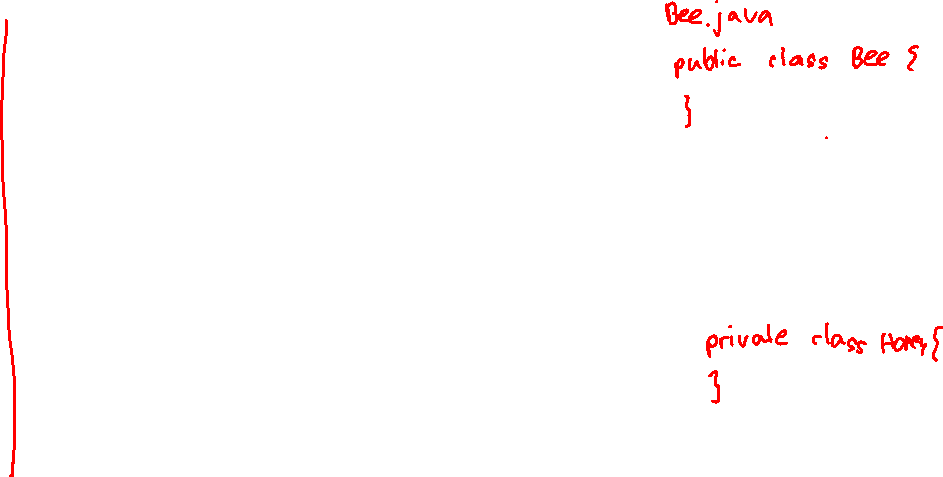 Bee.java
public class Bee {
}
private class Honey {
}